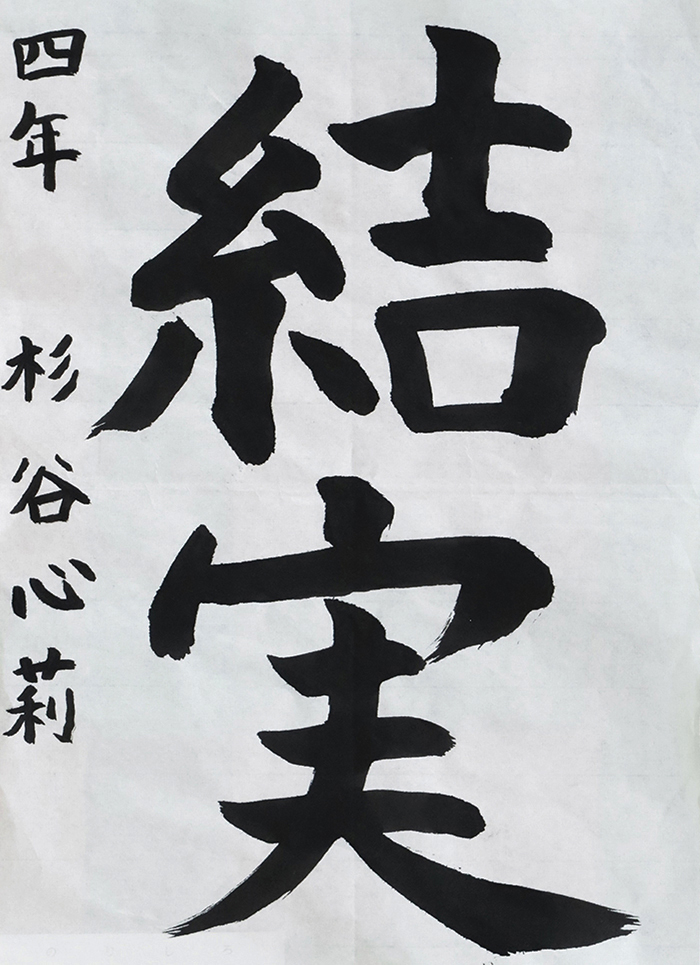 結実
四年 杉谷心莉